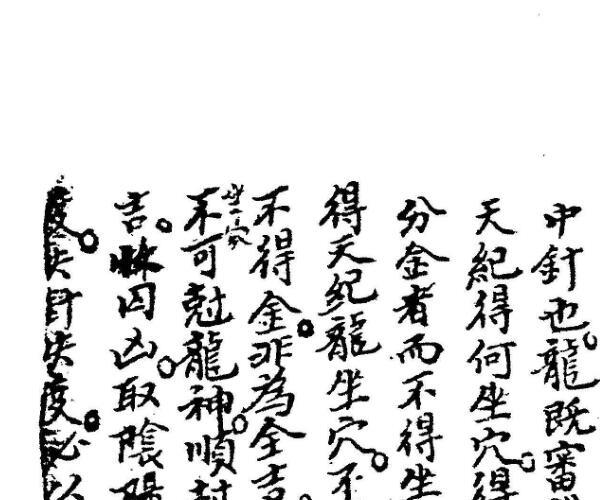 中針也龍既審
天紀得何坐穴得
分金者而不得坐
得天紀龍坐穴不
不得金非為全吉
坐家
不可尅龍神順
吉 囚凶取陰陽
失針失度必以